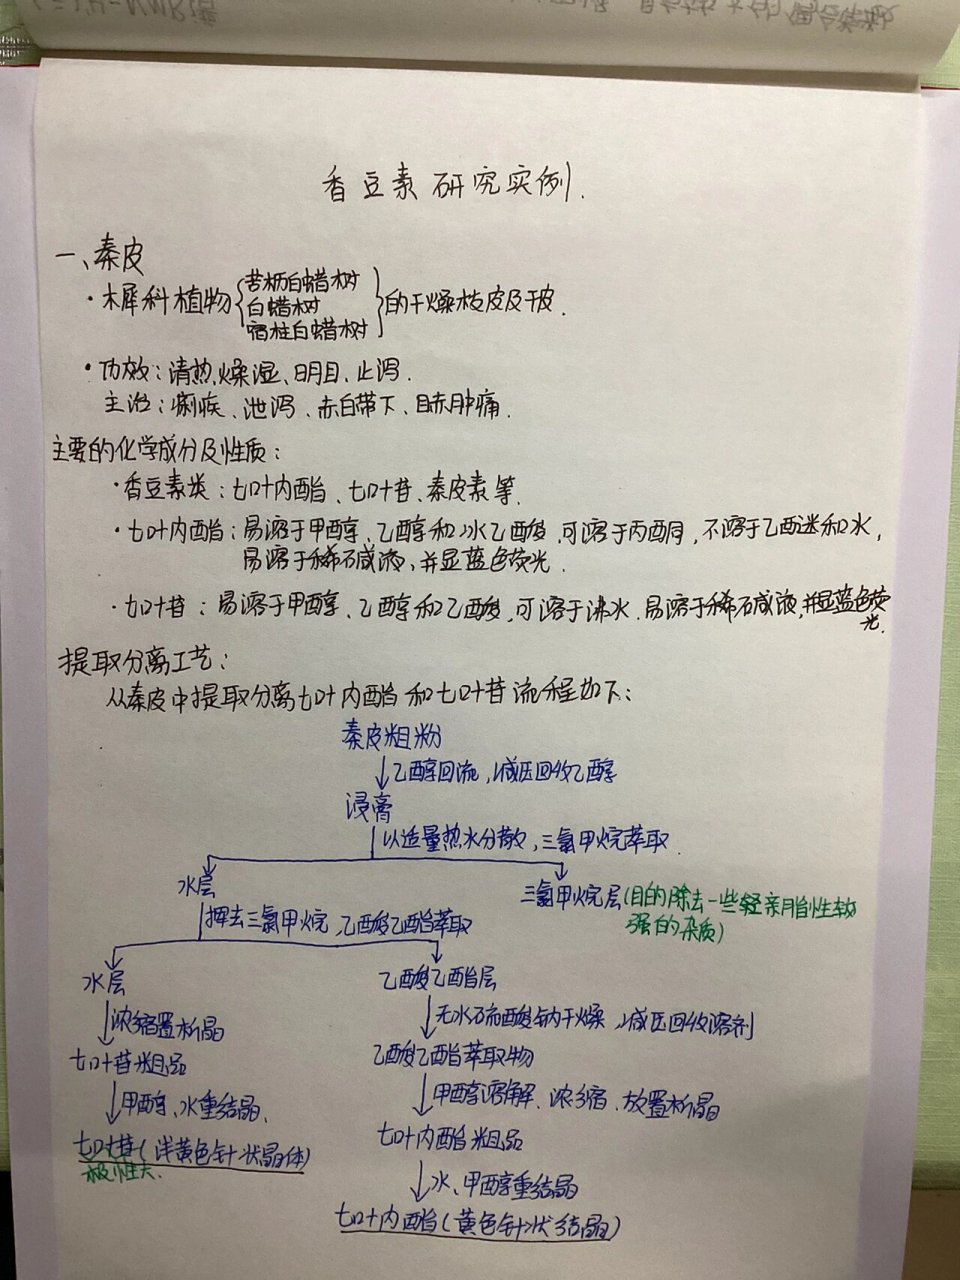 香豆素研究实例.
一、秦皮
·木犀科植物{苦枥白蜡树
白蜡树
宿柱白蜡树}的干燥枝皮及干皮.
·功效:清热燥湿、明目、止泻.
主治:痢疾、泄泻、赤白带下、目赤肿痛.
主要的化学成分及性质:
·香豆素类:七叶内酯、七叶苷、秦皮素等.
·七叶内酯:易溶于甲醇、乙醇和冰乙酸,可溶于丙酮,不溶于乙醚和水,
易溶于稀碱液,并显蓝色荧光.
·七叶苷:易溶于甲醇、乙醇和乙酸,可溶于沸水.易溶于稀碱液,并显蓝色荧
光.
提取分离工艺:
从秦皮中提取分离七叶内酯和七叶苷流程如下:
秦皮粗粉
↓乙醇回流,减压回收乙醇
浸膏
以适量热水分散,三氯甲烷萃取.
水层
三氯甲烷层(目的除去一些轻亲脂性较
强的杂质)
挥去三氯甲烷,乙酸乙酯萃取
水层
乙酸乙酯层
↓浓缩置析晶
↓无水硫酸钠干燥,减压回收溶剂
七叶苷粗品
乙酸乙酯萃取物
↓甲醇、水重结晶.
↓甲醇溶解、浓缩、放置析晶
七叶苷(浅黄色针状晶体)
极性大.
七叶内酯粗品
↓水、甲醇重结晶
七叶内酯(黄色针状结晶)